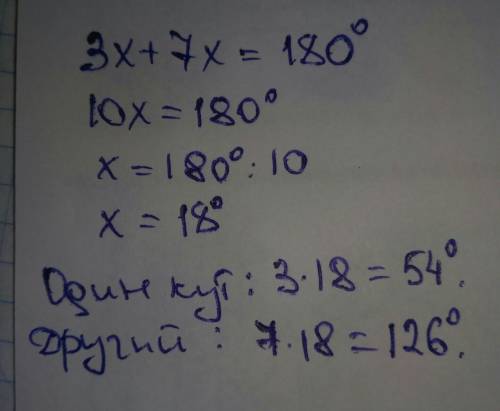 3x + 7x = 180°
10x = 180°
x = 180° : 10
x = 18°
Один кут : 3 · 18 = 54°.
Другий : 7 · 18 = 126°.